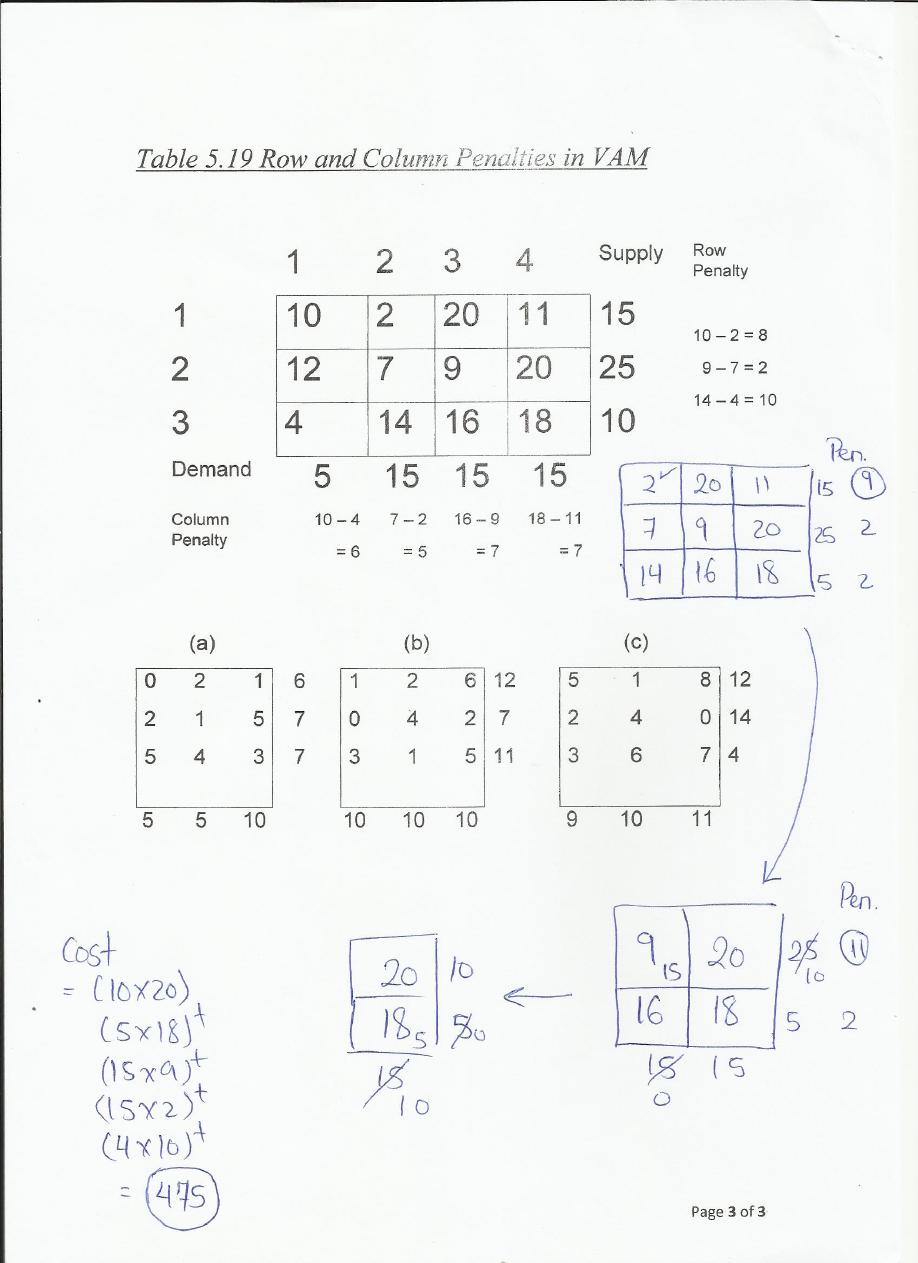 Table 5.19 Row and Column Penalties in VAM
1 2 3 4 Supply Row Penalty
1 10 2 20 11 15 10 – 2 = 8
2 12 7 9 20 25 9 – 7 = 2
3 4 14 16 18 10 14 – 4 = 10
Demand 5 15 15 15
Column Penalty 10 – 4 7 – 2 16 – 9 18 – 11
= 6 = 5 = 7 = 7
Pen.
2 20 11 15 9
7 9 20 25 2
14 16 18 5 2
(a) (b) (c)
0 2 1 6 1 2 6 12 5 1 8 12
2 1 5 7 0 4 2 7 2 4 0 14
5 4 3 7 3 1 5 11 3 6 7 4
5 5 10 10 10 10 9 10 11
Pen.
9 15 20 25 10 11
16 18 5 2
15 15
0
20 10
18 5 5 0
15
10
Cost
= (10x20)
(5x18)+
(15x9)+
(15x2)+
(4x10)+
= 475
Page 3 of 3